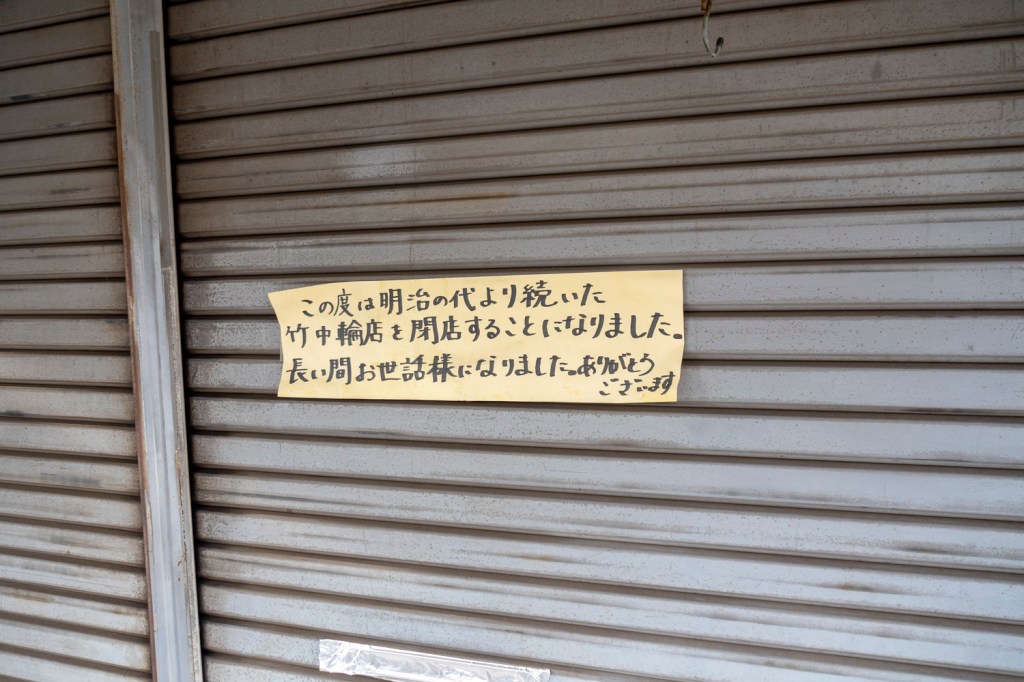 この度は明治の代より続いた
竹中輪店を閉店することになりました。
長い間お世話様になりました。ありがとう
ございます